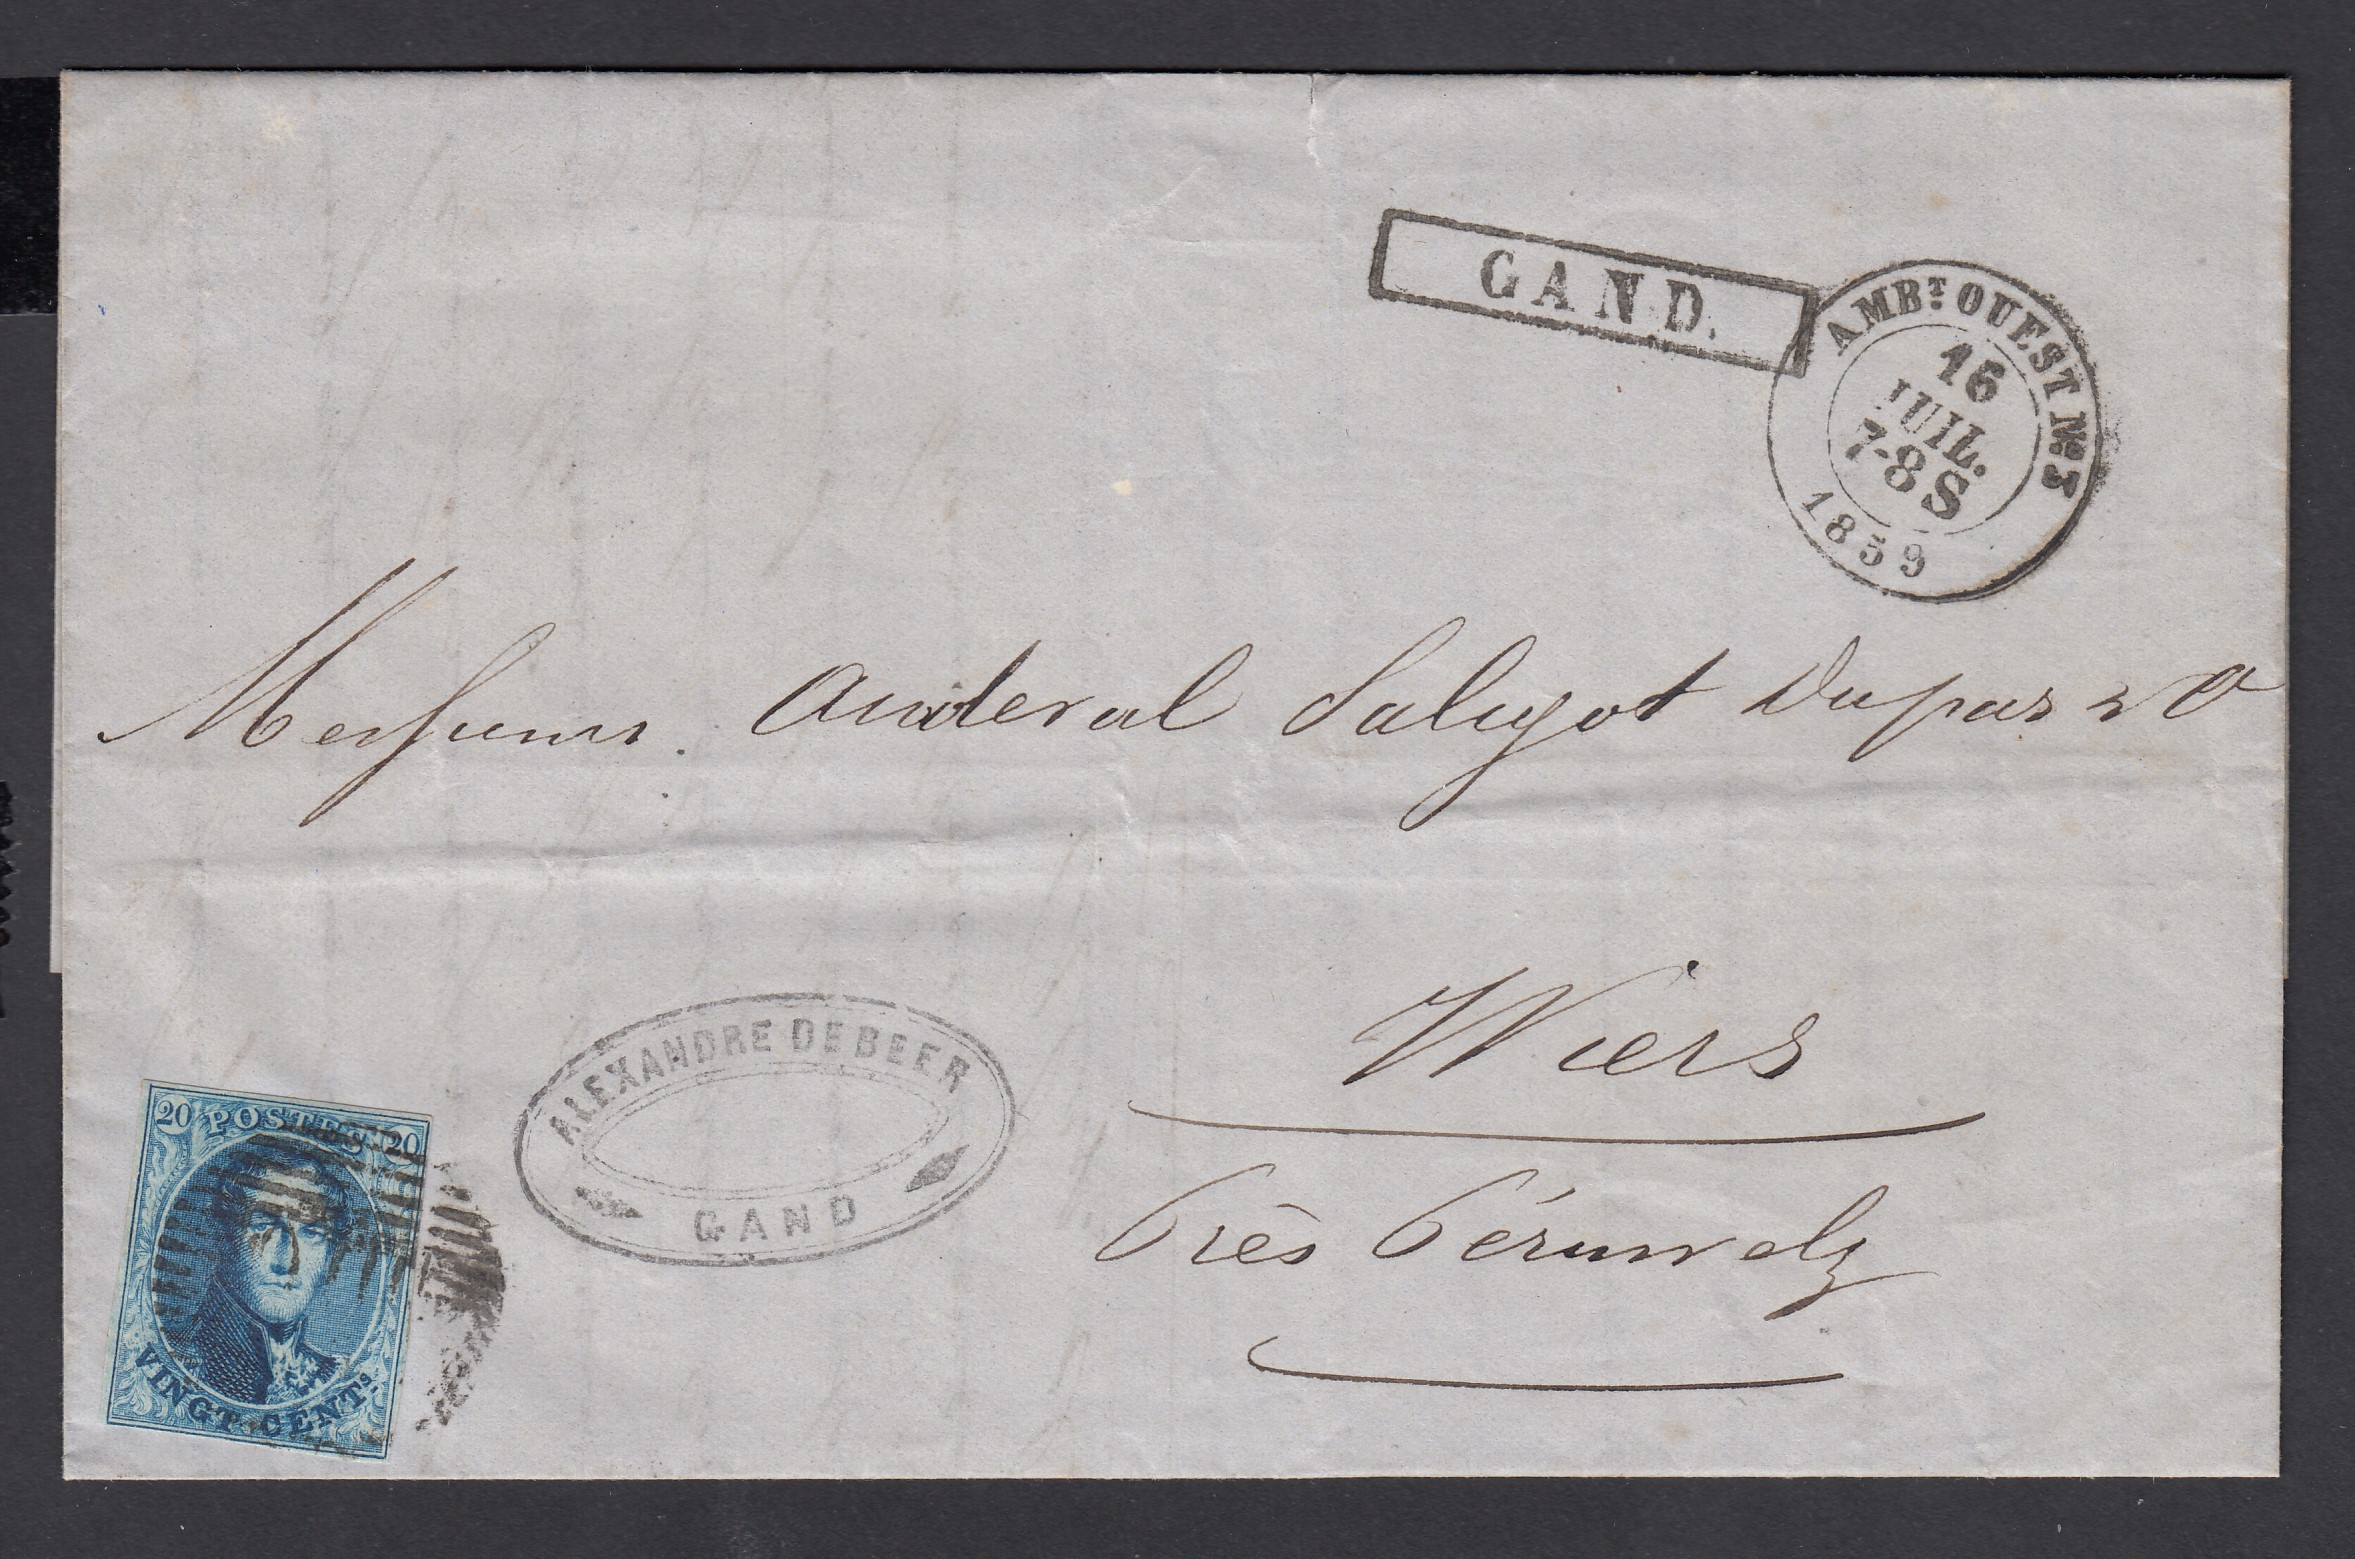 GAND.
AMBT. OUEST No. 3
16
JUIL.
7-8 S
1859
Messieurs Auderval Saligot Dupas & Co
Wiers
Près Péruwelz
ALEXANDRE DEBEER
GAND
20 POSTES 20
VINGT CENTS.